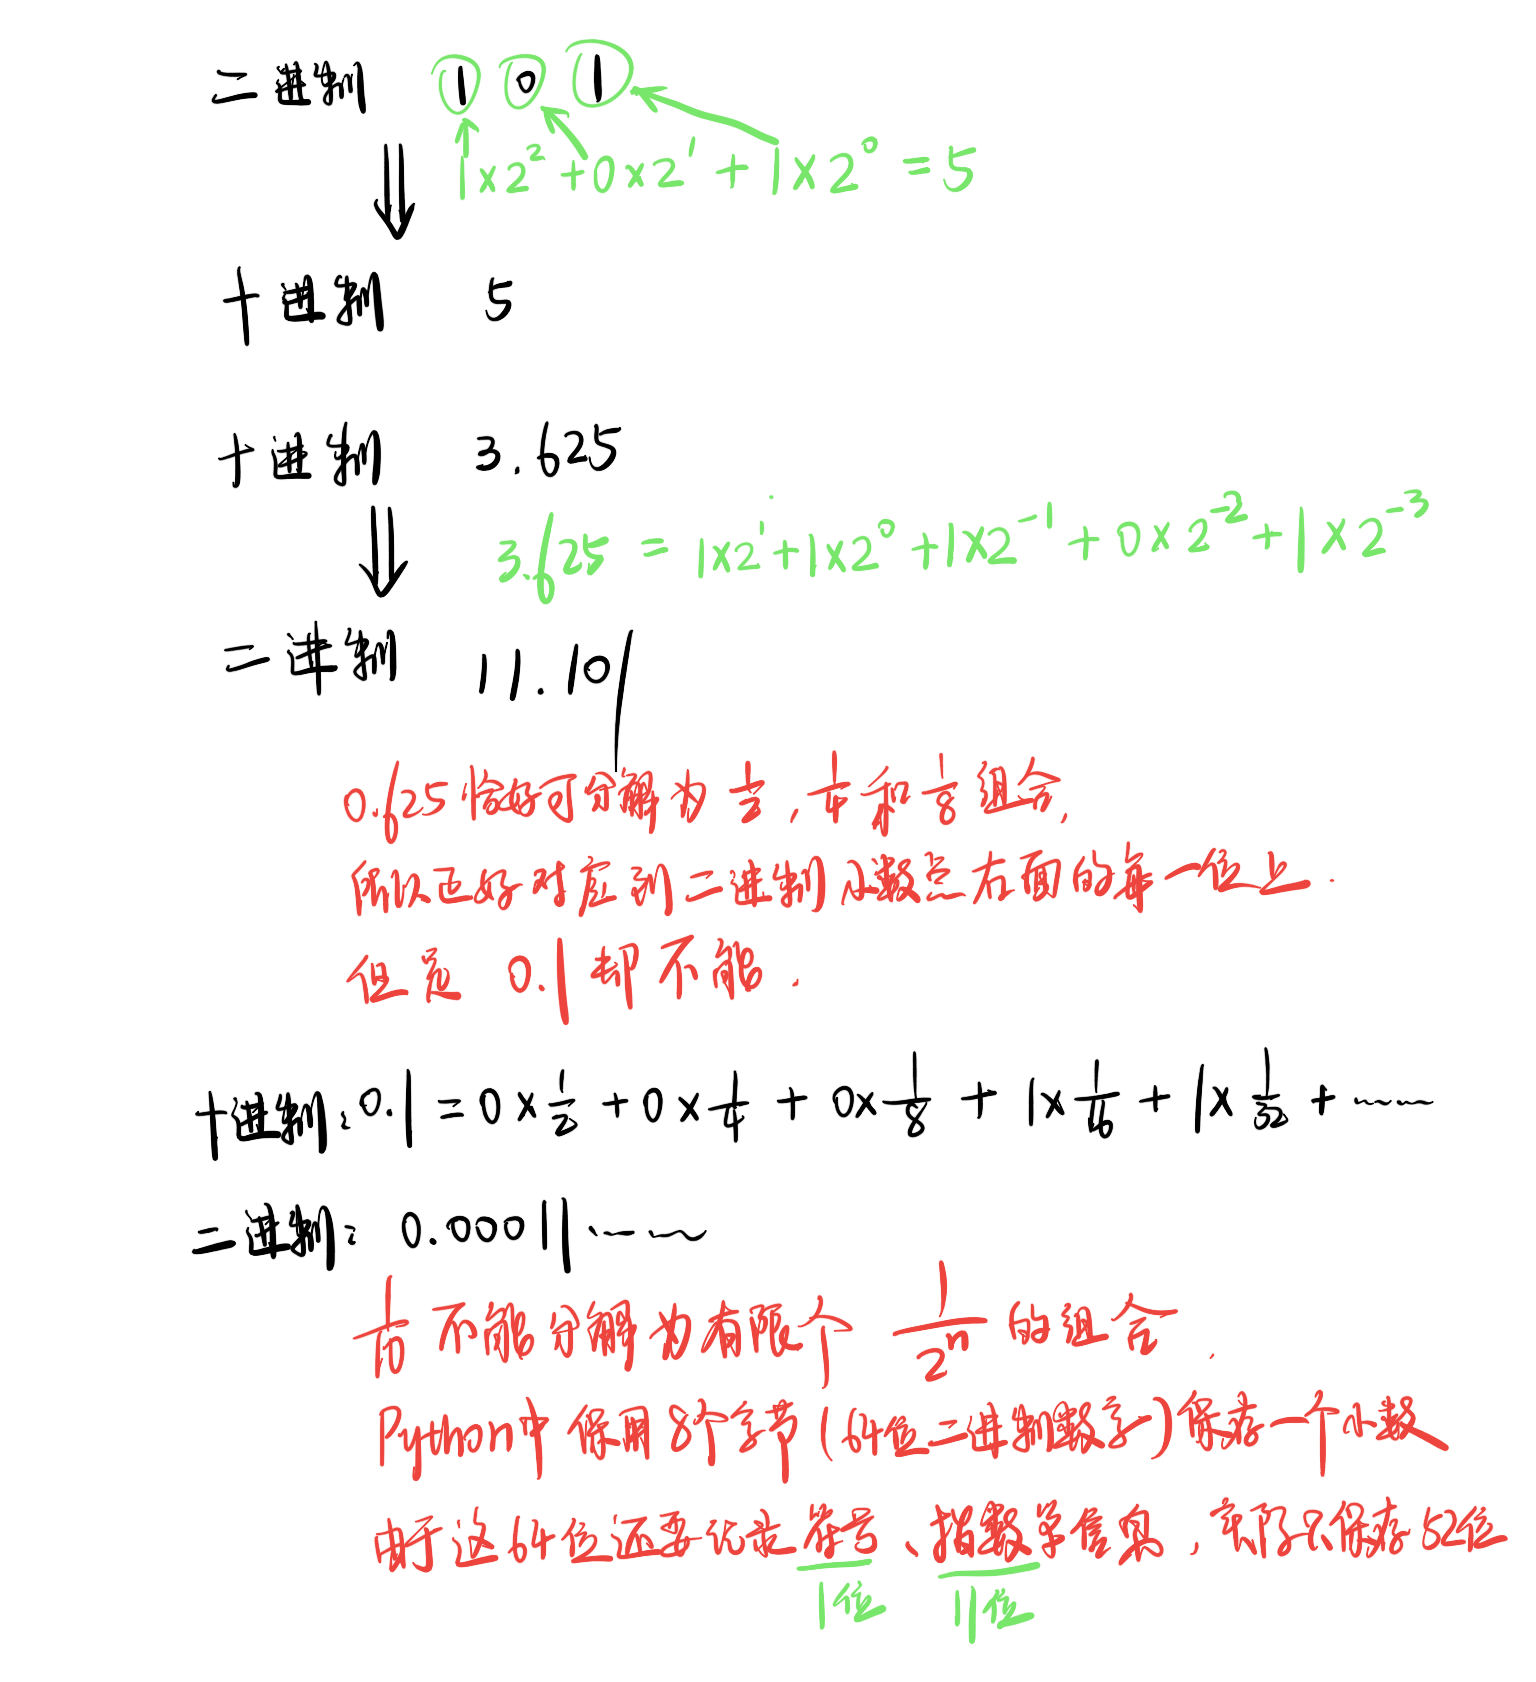 二进制 1 0 1
1×2² + 0×2¹ + 1×2⁰ = 5
十进制 5
十进制 3.625
3.625 = 1×2¹ + 1×2⁰ + 1×2⁻¹ + 0×2⁻² + 1×2⁻³
二进制 11.101
0.625恰好可分解为 1/2, 1/4 和 1/8 组合,
所以正好对应到二进制小数点右面的每一位上.
但是 0.1 却不能.
十进制: 0.1 = 0×1/2 + 0×1/4 + 0×1/8 + 1×1/16 + 1×1/32 + ……
二进制: 0.00011……
1/10 不能分解为有限个 1/2ⁿ 的组合.
Python中 保用 8个字节 (64位二进制数字) 保存一个小数
由于这64位还要记录 符号、指数等信息, 实际只保存52位
1位 11位